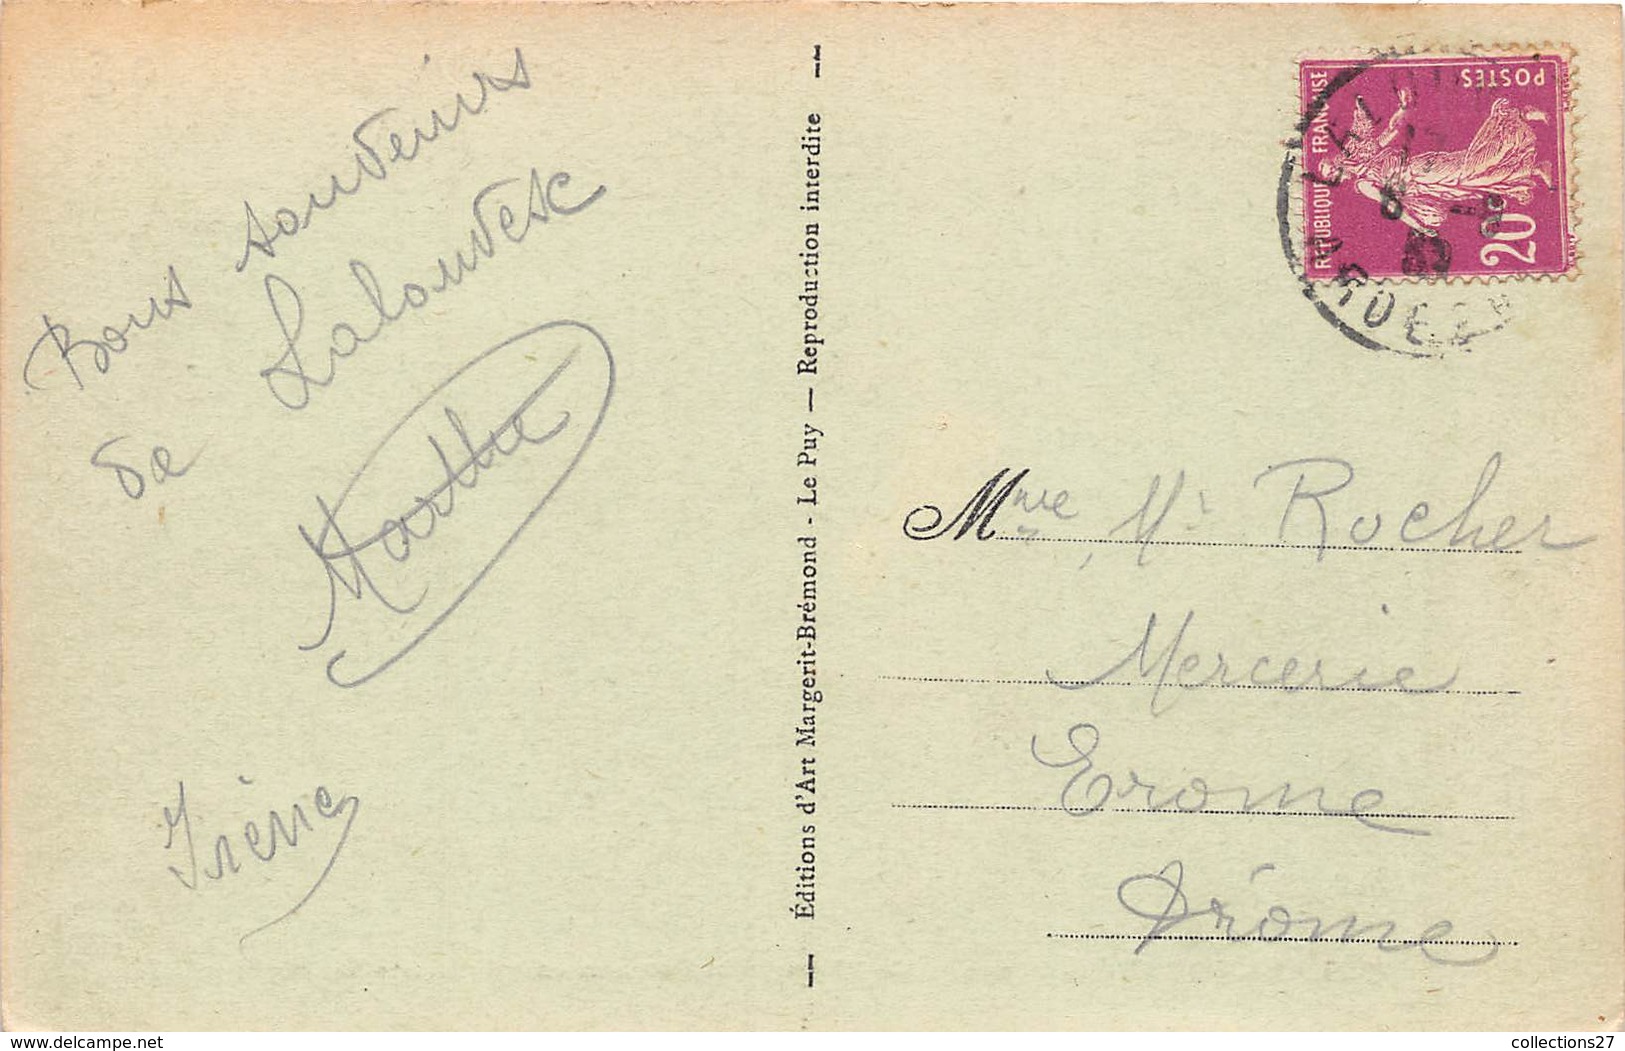 Bons souvenirs
de Lalouvesc
Marthe
Irène
— Éditions d'Art Margerit-Brémond - Le Puy — Reproduction interdite —
RÉPUBLIQUE FRANÇAISE
POSTES
20
ARDÈCHE
Mme Mi Rocher
Mercerie
Erome
Drôme
www.delcampe.net
collections27